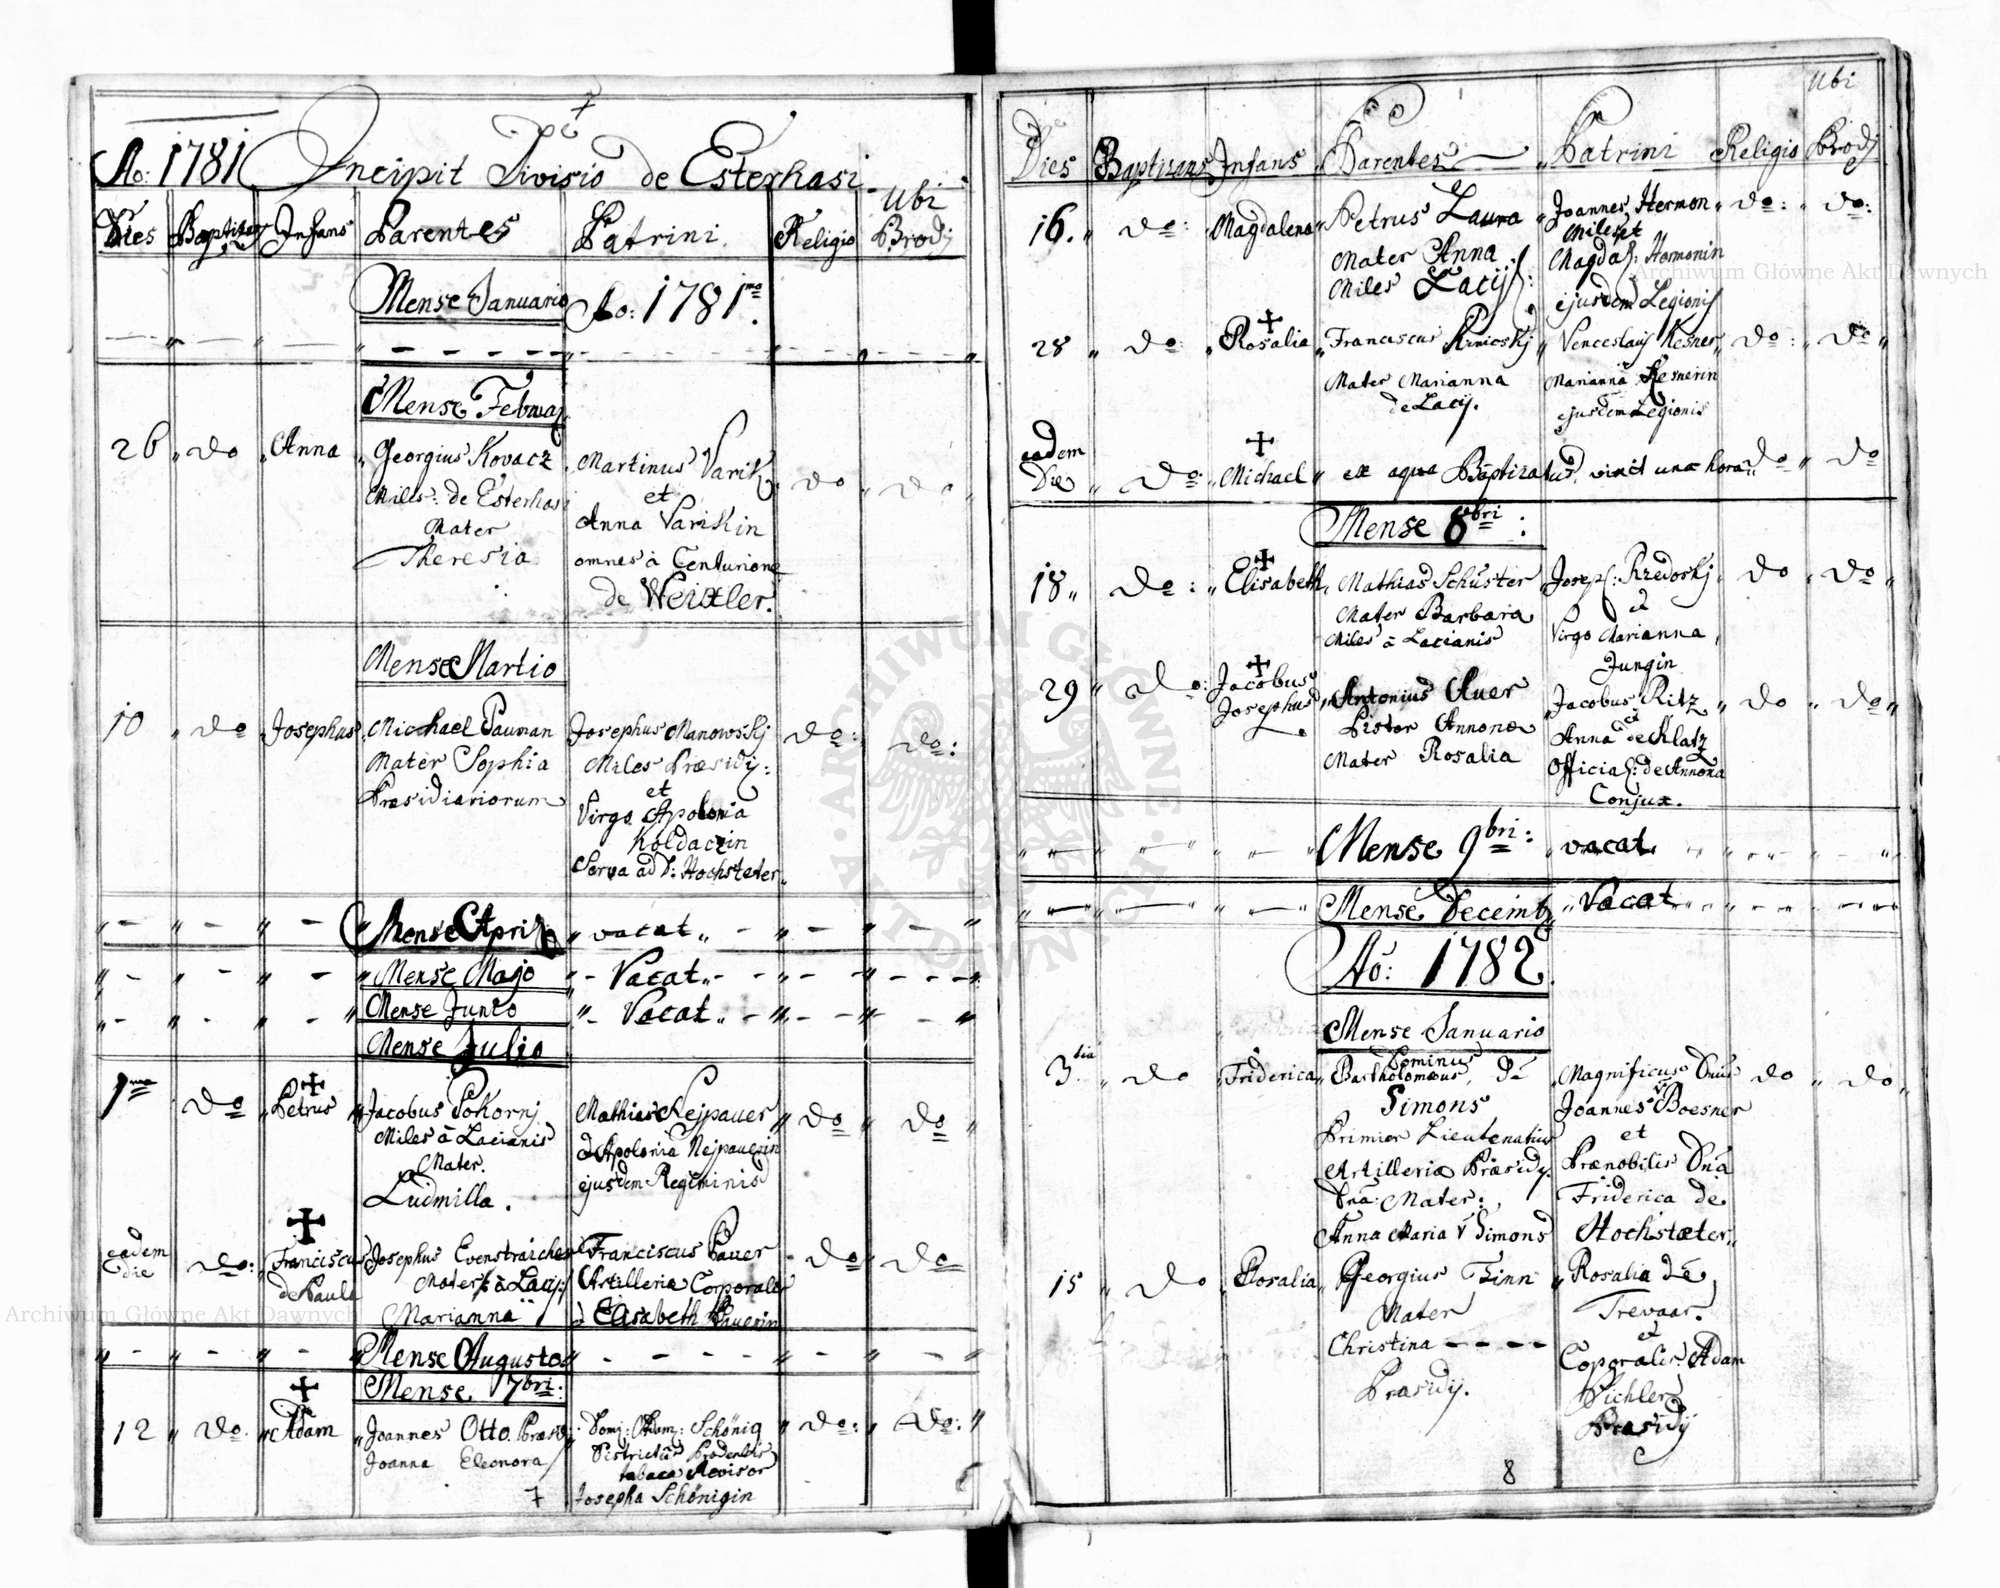 Ao: 1781 Incipit Divisio de Esterhasi
Ubi
Dies Infans Parentes Patrini Religio Brodij
Mense Januario Ao: 1781mo.
Mense
26 do Anna Georgius Kovacz Martinus Varik do do
Miles: de Esterhasi et
Mater Anna Varikin
Theresia omnes à Centurione
de Weixler.
Mense Martio
10 do Josephus Michael Pauman Josephus Manowskj do: do:
Mater Sophia Miles Præsidij:
Præsidiariorum et
Virgo Apolonia
Koldaczin
Serva ad D: Hochsteter
Mense vacat
Mense Majo Vacat
Mense Junio Vacat
Mense Julio
1ma do Petrus Jacobus Pokornj Mathias Nejpauer do do
Miles à Lacianis et Apolonia Nejpauerin
Mater. ejusdem Regiminis
Ludmilla.
eadem die do: Franciscus Josephus Franciscus Pauer do do
de Paula Mater à Lacij Artilleria Corporalis
Marianna Elisabeth Pauerin
Mense Augusto
Mense 7bri:
12 do Adam Joannes Otto Præsidij Schönig do: do:
Joanna Eleonora Districtus Brodensis
tabaca Revisor
7 Josepha Schönigin
Archiwum Główne Akt Dawnych
Ubi
Dies Baptizans Infans Parentes Patrini Religio Brodij
16. do: Magdalena Petrus Laura Joannes Hermon do: do:
Miles et
Mater Anna Magdal: Hormonin
Miles Lacij: ejusdem Legionis
28 do: Rosalia Franciscus Venceslaus Kesner do: do
Mater Marianna Marianna Kesnerin
de Lacij. ejusdem Legionis
eadem
Die do: Michael ex aqua Baptizatus, vixit una hora do do
Mense 8bri:
18 do: Elisabeth Mathias Schuster Joseph: Rzedoskj do do
Mater Barbara et
Miles à Lacianis Virgo Marianna
Jungin
29 do: Jacobus Antonius Auer Jacobus Ritz do do
Josephus Pistor Annonæ et
Mater Rosalia Anna de Klatz
Official: de Annona
Conjux.
Mense 9bri: vacat
Mense Decemb Vacat
Ao: 1782
Mense Januario
3tia do Friderica Dominus Magnificus Dnus do do
Bartholomæus De Joannes V Boesner
Simons et
Primier Lieutenatius Prænobilis Dna
Artilleriæ Præsidij. Friderica de
Dna Mater: Hochstæter
Anna Maria V Simons
15 do Rosalia Georgius Finn Rosalia De
Mater Trevaar.
Christina et
Præsidij. Coporalis Adam
Pichler
Præsidij
8
Archiwum Główne Akt Dawnych
ARCHIWUM GŁÓWNE AKT DAWNYCH